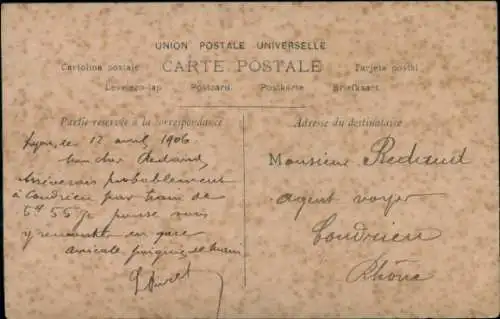 UNION POSTALE UNIVERSELLE
Cartolina postale CARTE POSTALE Tarjeta postal
Levelezo-lap Postcard Postkarte Briefkaart
Partie réservée à la correspondance
Adresse du destinataire
Lyon, le 12 avril 1906
Mon cher Redaud
Arriverais probablement
à Condrieu par train de
5h 55 je pense vous
y rencontrer en gare
amicale poignée de main
Monsieur Redaud
agent voyer
Condrieu
Rhône